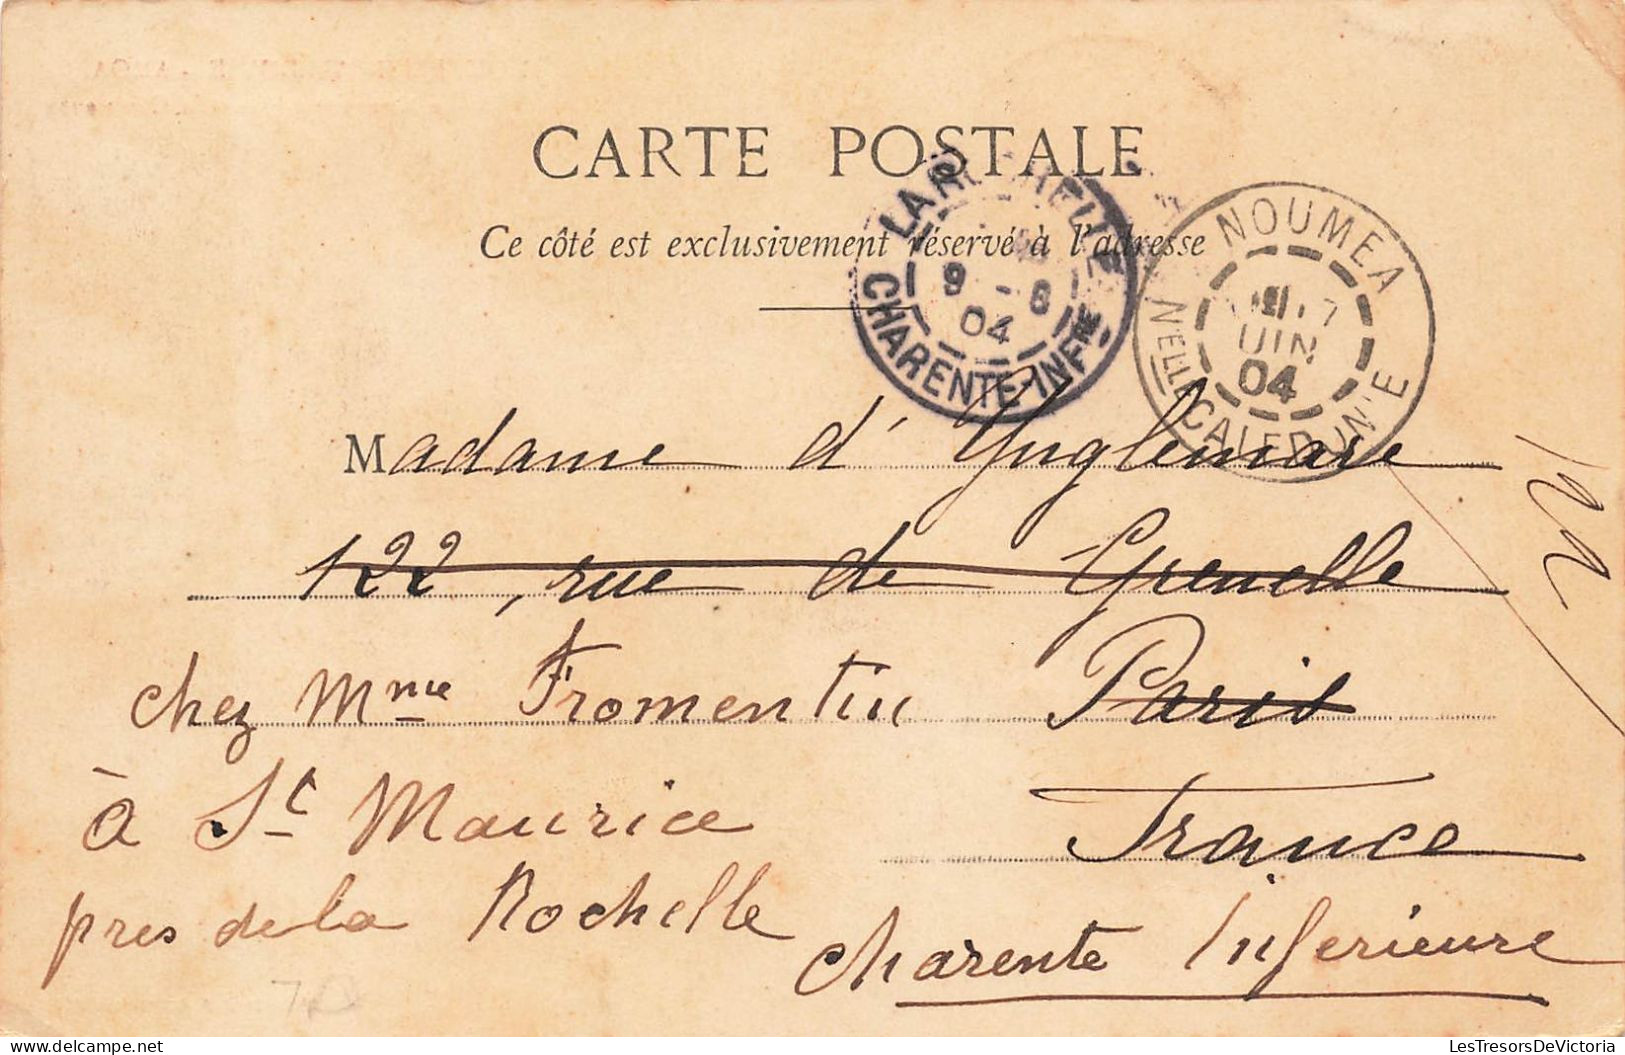 CARTE POSTALE
Ce côté est exclusivement réservé à l'adresse
LA ROCHELLE
9 - 8
04
CHARENTE-INFRE
NOUMEA
JUIN
04
NELLE CALEDONIE
Madame d'Ynglemare
122, rue de Grenelle
chez Mme Fromentin Paris
à St Maurice France
près de la Rochelle
Charente Inferieure
LesTresorsDeVictoria